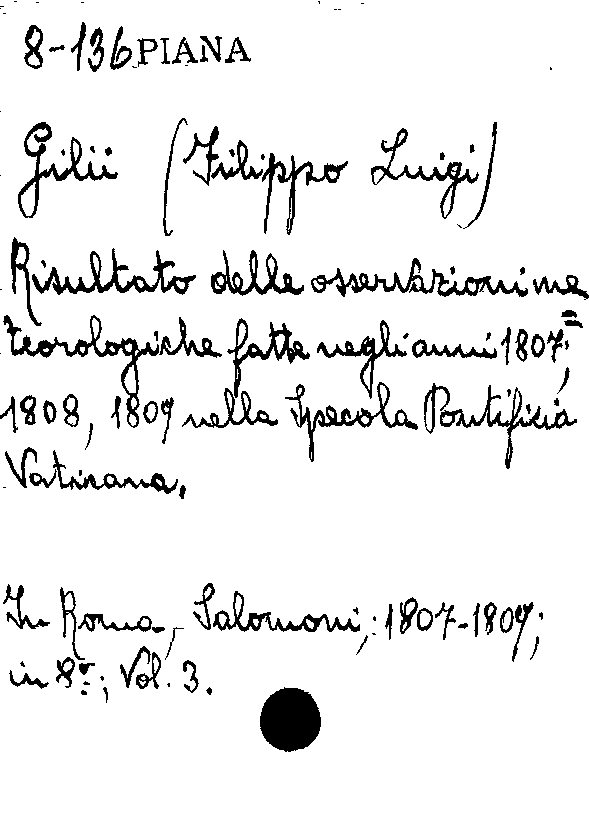 8-136 PIANA
Gilii (Filippo Luigi)
Risultato delle osservazioni me=
teorologiche fatte negli anni 1807;
1808, 1809 nella Specola Pontificia
Vaticana.
In Roma, Salomoni,: 1807-1809;
in 8º; Vol. 3.